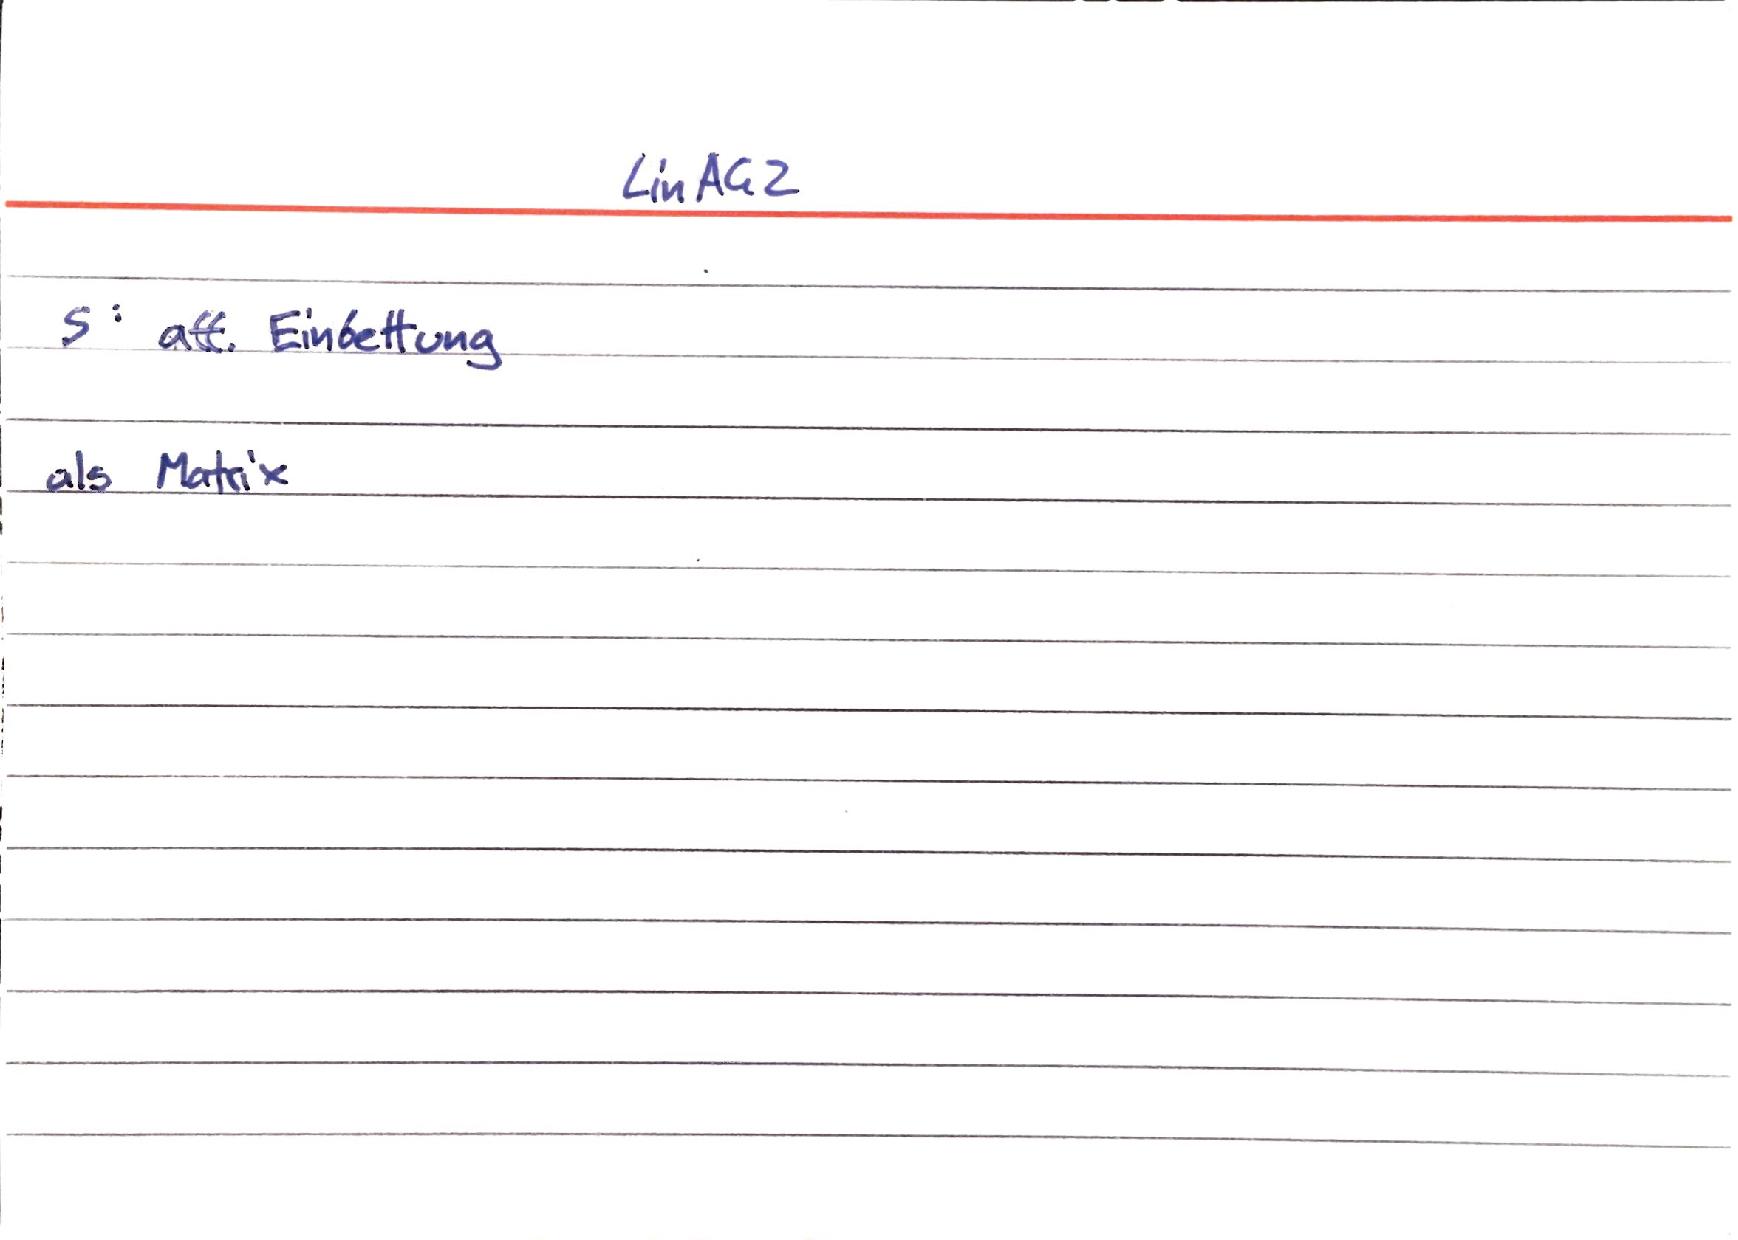 LinAG2
S: aff. Einbettung
als Matrix